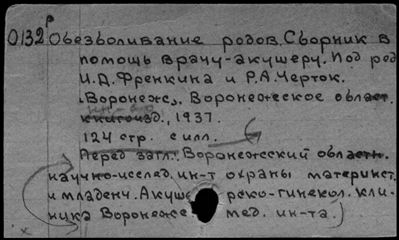 0132р Обезболивание родов. Сборник в
помощь врачу-акушеру. Под ред
И.Д. Френкина и Р.А. Черток.
Воронеж, Воронежское област.
книгоизд., 1937.
124 стр. с илл.
Перед загл.: Воронежский областн.
научно-исслед. ин-т охраны материнст.
и младенч. Акуше реко-гинекол. кли-
ника Воронежс мед. ин-та.)